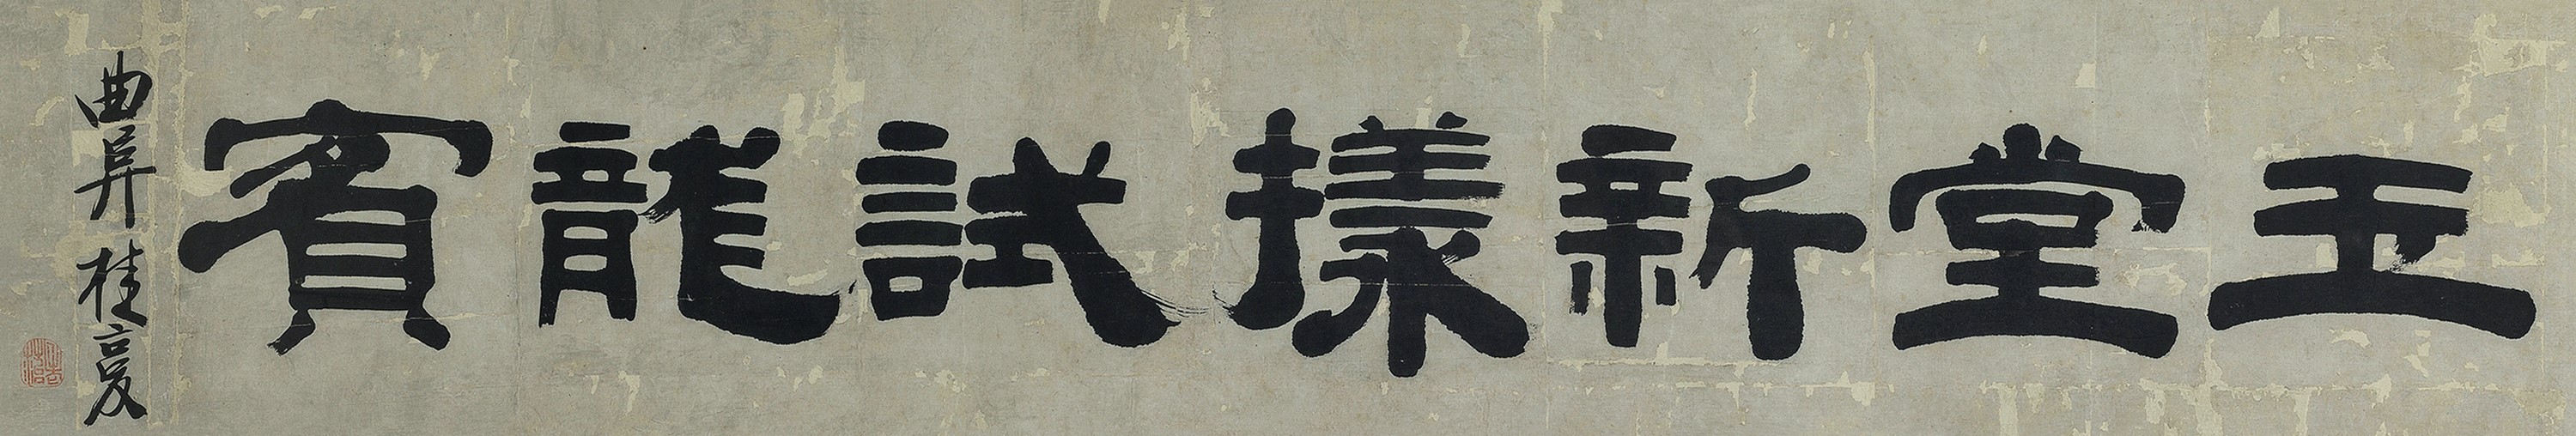 玉堂新樣試龍賓
曲阜桂馥